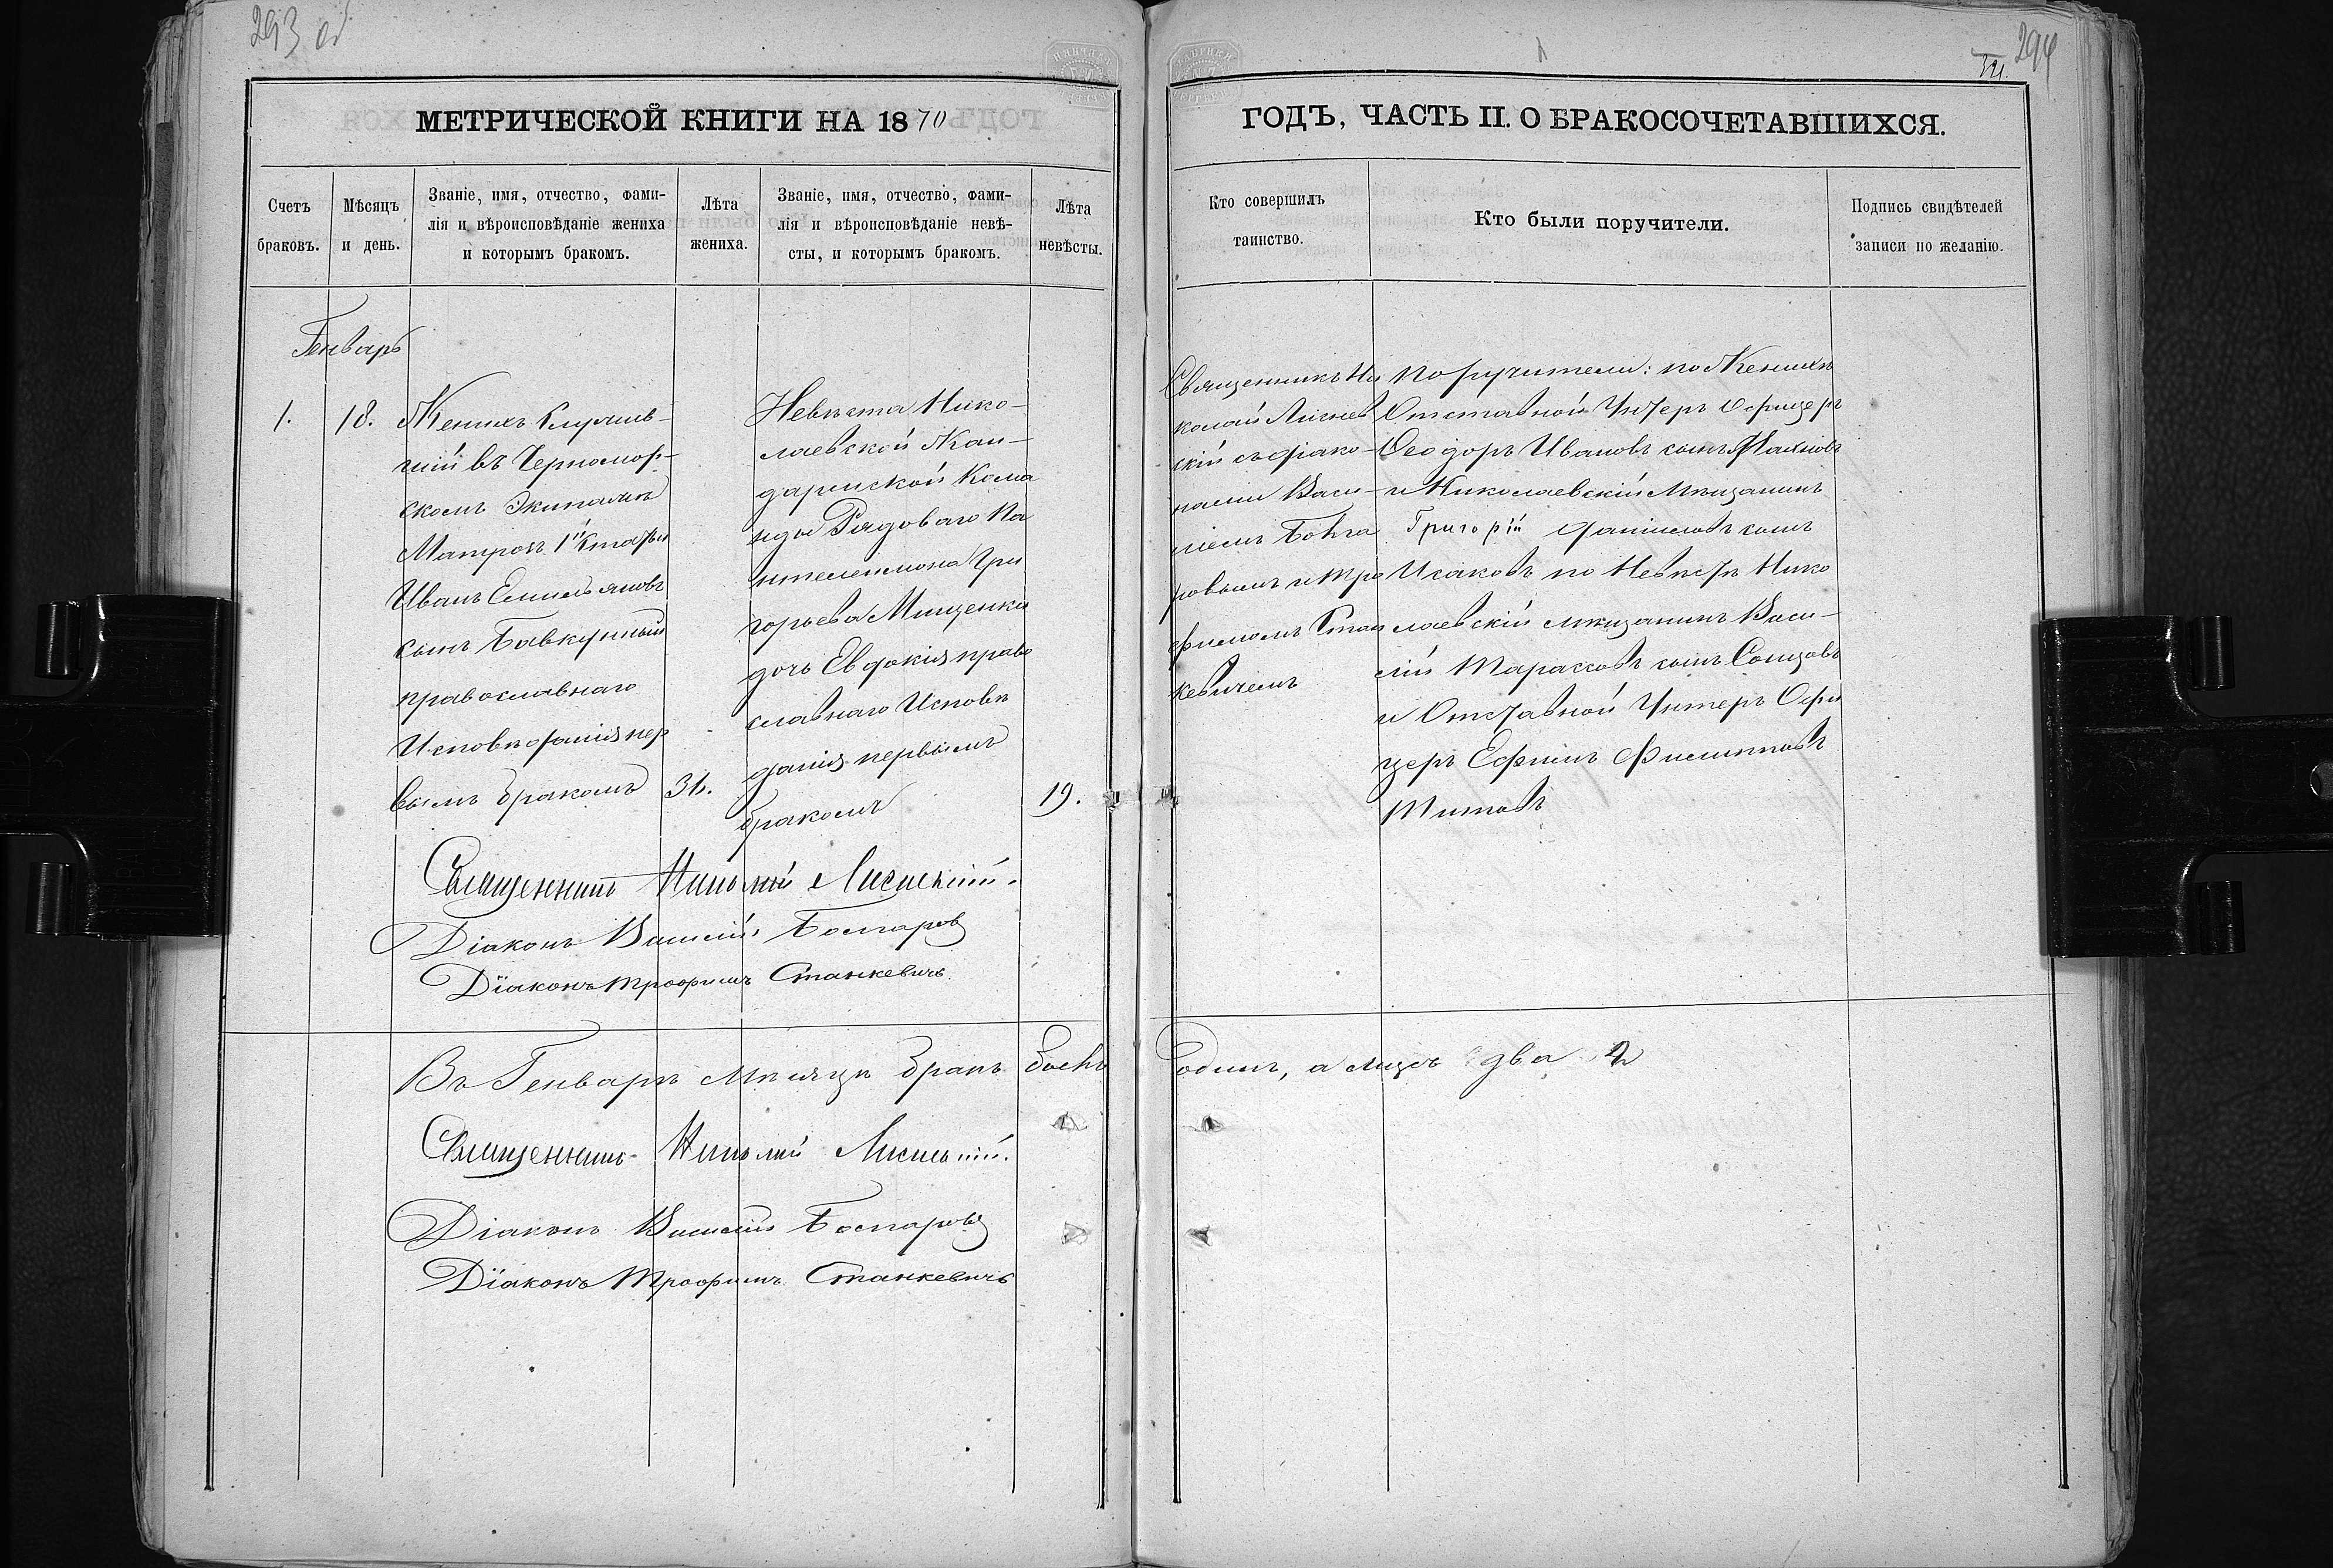 293 об
294
МЕТРИЧЕСКОЙ КНИГИ НА 1870
ГОДЪ, ЧАСТЬ II. О БРАКОСОЧЕТАВШИХСЯ.
Счетъ
браковъ.
Мѣсяцъ
и день.
Званіе, имя, отчество, фами-
лія и вѣроисповѣданіе жениха
и которымъ бракомъ.
Лѣта
жениха.
Званіе, имя, отчество, фами-
лія и вѣроисповѣданіе невѣ-
сты, и которымъ бракомъ.
Лѣта
невѣсты.
Кто совершилъ
таинство.
Кто были поручители.
Подпись свидѣтелей
записи по желанію.
Генварь
1.
18.
Женихъ Служив-
шій въ Черномор-
скомъ Экипажѣ
Матрозъ 1й Статьи
Иванъ Емильяновъ
сынъ
православнаго
Исповѣданія пер
вымъ бракомъ
31.
Невѣста Нико-
лаевской Жан-
дармской Кома
нды Рядоваго Па
нтелеимона Гри
горьева Мищенка
дочь Евдокія право
славнаго Исповѣ
данія первымъ
бракомъ
19.
Священникъ Ни
колай Лиснев
скій съ діако-
нами Васи-
ліемъ
ровымъ и Тро
фимомъ Стан
кевичемъ
Поручители: по Женихѣ
Отставной Унтеръ Офицеръ
Ѳеодоръ Ивановъ сынъ
и Николаевскій Мѣщанинъ
Григорій Даниловъ сынъ
Исаковъ по Невѣстѣ Нико
лаевскій мѣщанинъ Васи-
лій Тарасовъ сынъ
и Отставной Унтеръ Офи
церъ Ефимъ Филиповъ
Титовъ
Священникъ Николай
Діаконъ Василій
Діаконъ Трофимъ Станкевичъ
Въ Генварѣ Мѣсяцѣ бракъ былъ
одинъ, а лицъ два 2
Священникъ Николай
Діаконъ Василій
Діаконъ Трофимъ Станкевичъ